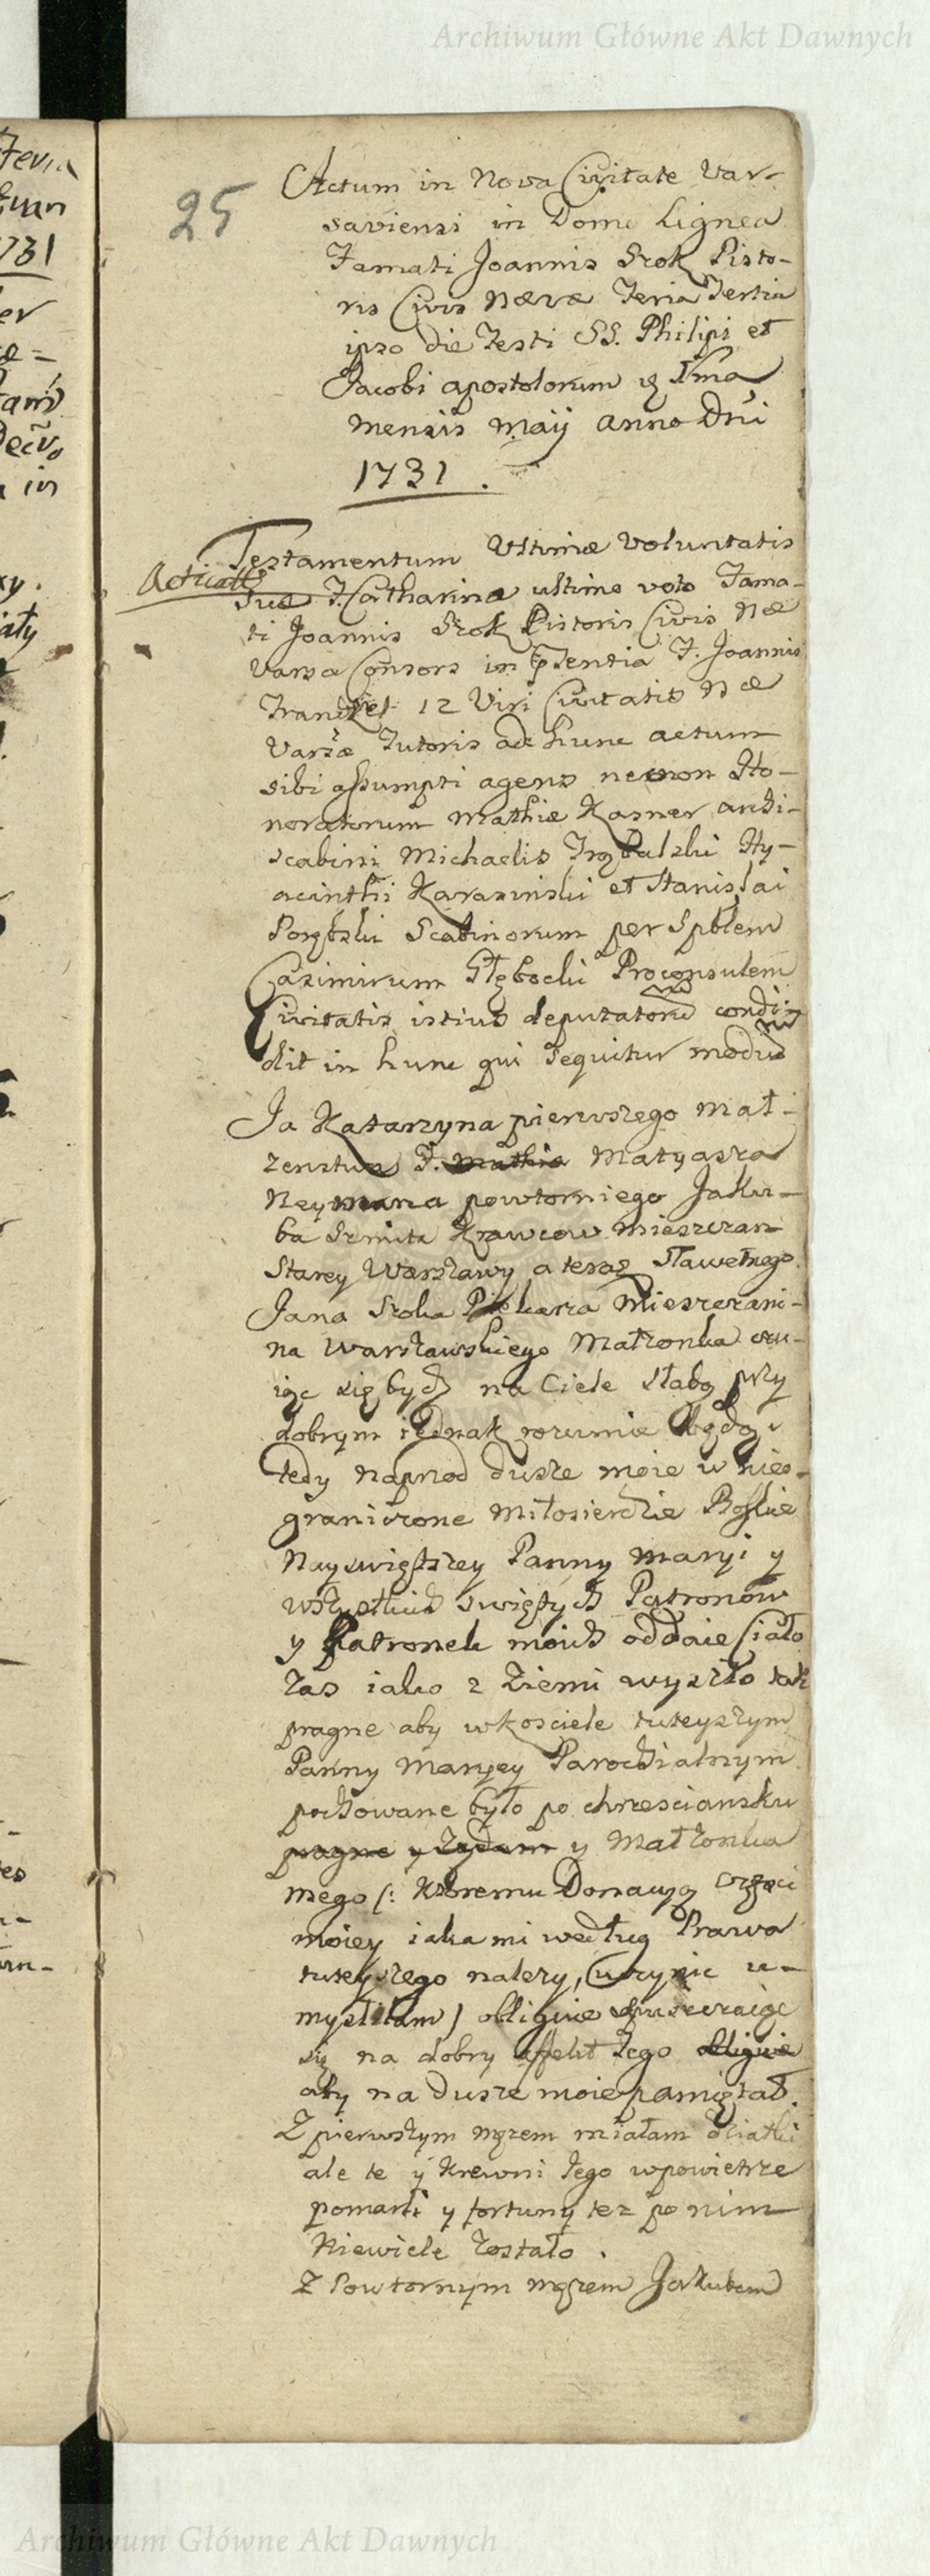 Archiwum Główne Akt Dawnych
25
Actum in Nova Civitate Var-
saviensi in Domo Lignea
Famati Joannis Srok Pisto-
ris Civis Novæ Feria Tertia
ipso die Festi SS. Philipi et
Jacobi apostolorum
mensis maij anno Dni
1731.
Testamentum Ultimæ Voluntatis
Suæ F. Catharina ultimo voto Fama-
ti Joannis Srok Pistoris Civis Næ
Varsa Consors in F. Joannis
12 Viri Civitatis Næ
Varsæ Tutoris ad hunc actum
sibi assumpti agens necnon Ho-
noratorum Mathiæ Kasner
scabini Michaelis Hy-
acinthi Karasinski et Stanislai
Scabinorum per Spblem
Casimirum Głębocki Proconsulem
Civitatis istius deputatorũ condi-
dit in hunc qui sequitur modũ
Ja Katarzyna pierwszego mał-
zenstwa F. Matyasza
Neymana powtorniego Jaku-
ba Szmita Krawcow Mieszczan
Starey Warszawy a teraz Sławetnego
Jana Sroka Piekarza Mieszczani-
na Warszawskiego Małzonka czu-
iąc się bydź na Ciele słabą przy
dobrym iednak rozumie będąc
tedy naprzod dusze moie w nieo-
graniczone Miłosierdzie Boskie
Nayswiętszey Panny Maryi y
wszystkich Swiętych Patronow
y Patronek moich oddaie Ciało
zas iako z ziemi wyszło tak
pragne aby w kosciele tuteyszym
Panny Maryey Parochialnym
pochowane było po chrzesciansku
pragne y żądam y Małzonka
mego (: ktoremu Donacyą częsci
moiey iaka mi według Prawa
tuteyszego nalezy, uczynic u-
mysliłam) obliguie spuszczaiąc
się na dobry affekt Jego obliguie
aby na dusze moie pamiętał.
Z pierwszym męzem miałam dziatki
ale te y Krewni Jego w powietrze
pomarli y fortuny tez po nim
Niewiele zostało.
Z Powtornym męzem Jakubem
Archiwum Główne Akt Dawnych